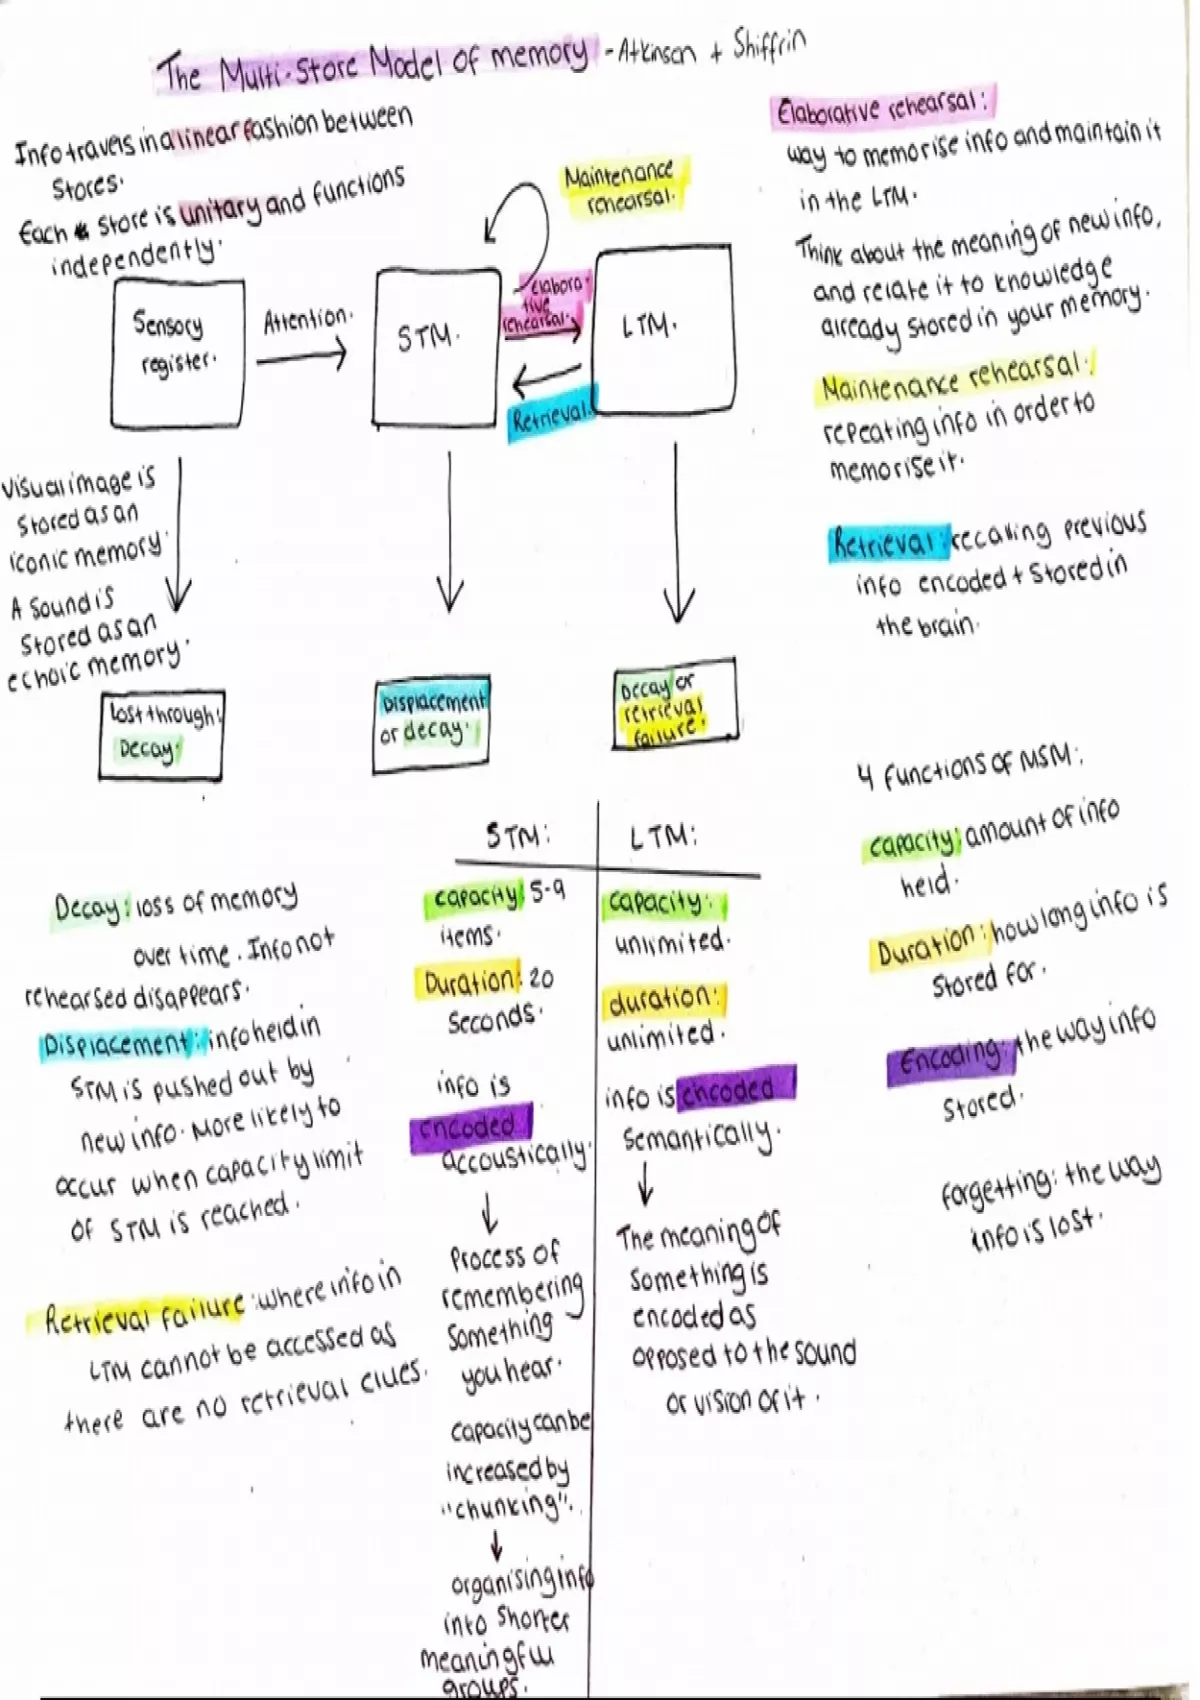 The Multi-Store Model of memory - Atkinson + Shiffrin
Info travels in a linear fashion between
stores.
Each store is unitary and functions
independently.
Sensory
register.
Attention.
STM.
Maintenance
rehearsal.
elabora-
tive
rehearsal.
Retrieval.
LTM.
Elaborative rehearsal:
way to memorise info and maintain it
in the LTM.
Think about the meaning of new info,
and relate it to knowledge
already stored in your memory.
Maintenance rehearsal:
repeating info in order to
memorise it.
Retrieval: recalling previous
info encoded + stored in
the brain.
Visual image is
stored as an
iconic memory.
A sound is
stored as an
echoic memory.
Lost through:
Decay.
Displacement
or decay.
Decay or
retrieval
failure.
Decay: loss of memory
over time. Info not
rehearsed disappears.
Displacement: info held in
STM is pushed out by
new info. More likely to
occur when capacity limit
of STM is reached.
Retrieval failure: where info in
LTM cannot be accessed as
there are no retrieval clues.
STM:
capacity: 5-9
items.
Duration: 20
seconds.
info is
encoded
accoustically.
Process of
remembering
something
you hear.
capacity can be
increased by
"chunking".
organising info
into shorter
meaningful
groups.
LTM:
capacity:
unlimited.
duration:
unlimited.
info is encoded
semantically.
The meaning of
something is
encoded as
opposed to the sound
or vision of it.
4 functions of MSM:
capacity: amount of info
held.
Duration: how long info is
stored for.
Encoding: the way info
stored.
forgetting: the way
info is lost.